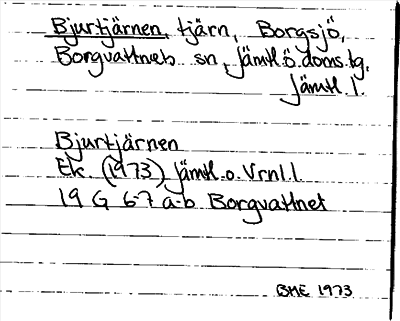 Bjurtjärnen, tjärn, Borgsjö,
Borgvattnets sn, Jämtl.ö.doms.tg.
Jämtl. l.
Bjurtjärnen
Ek. (1973) Jämtl.o.Vrnl.l.
19 G 6-7 a-b Borgvattnet
BME 1973